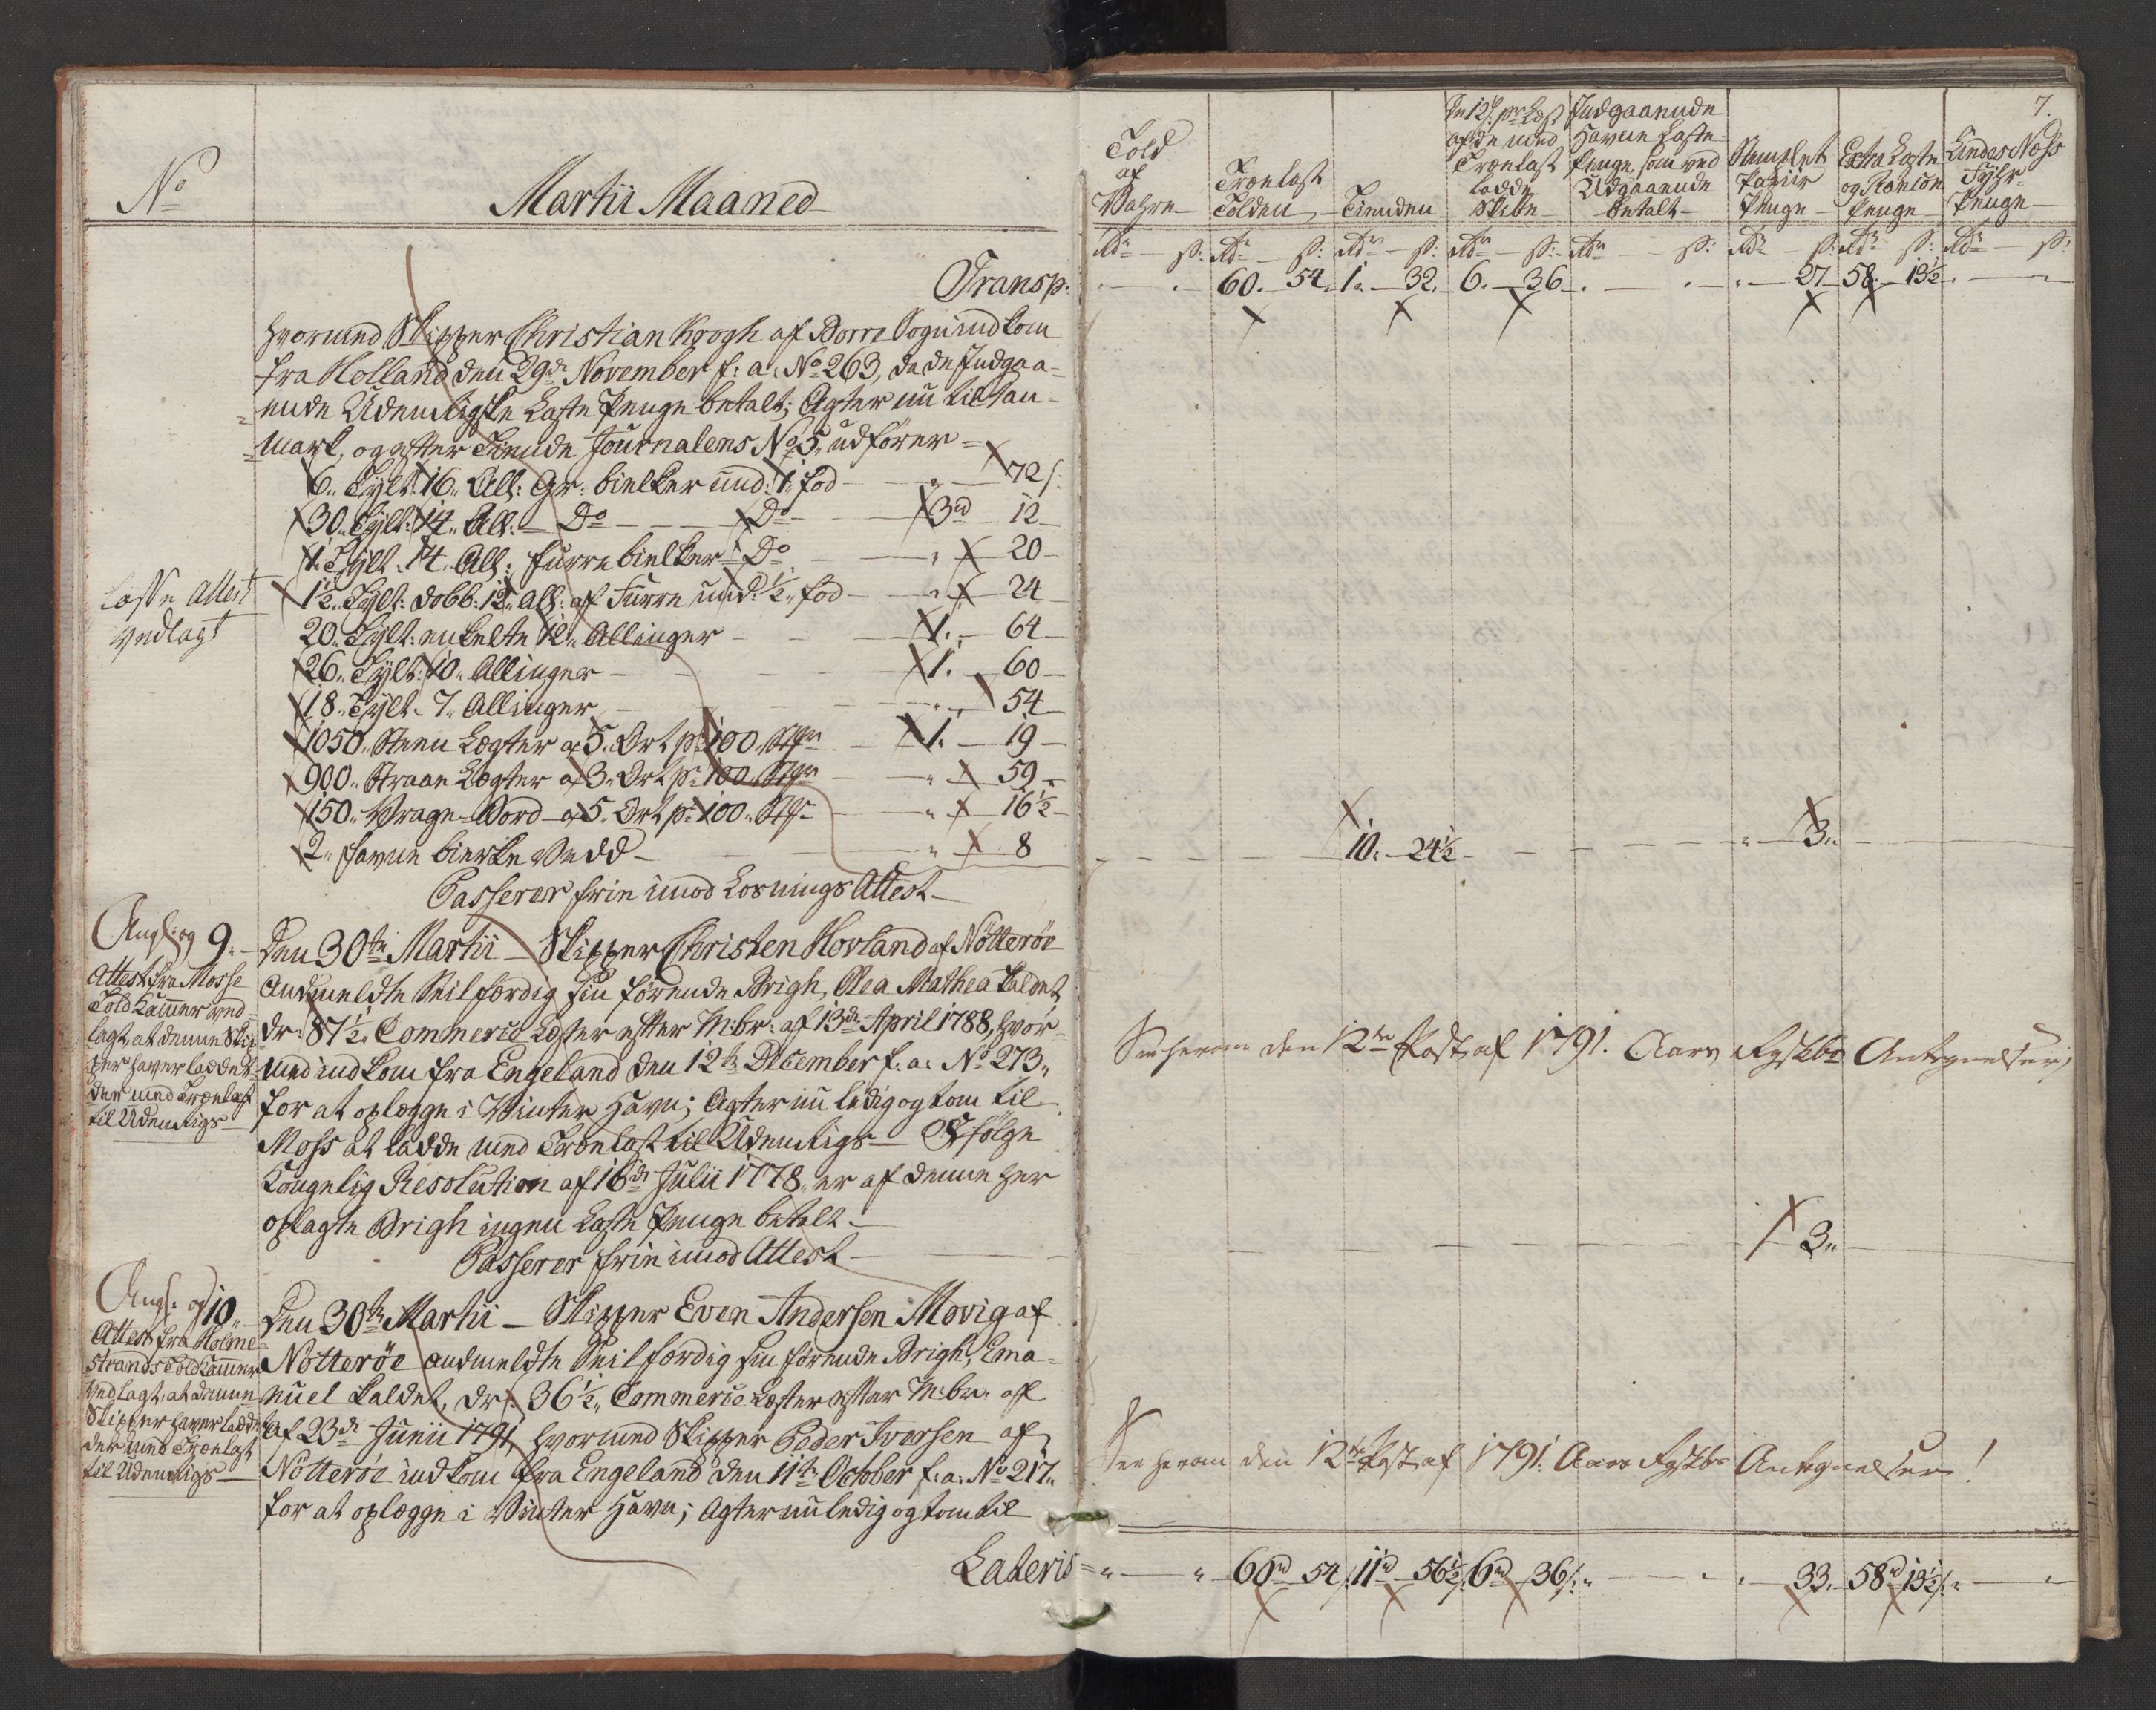 No
Martii Maaned
Transp.
hvormed Skipper Christian Krogh af Borre Sogn indkom
fra Holland den 29de November f: a: No 263, da de Indgaa-
ende Udenrigske Læste Penge betalt; Agter nu til Dan-
mark, og efter Tiende Journalens No 5, udfører =
6„ Tylt: 16„ All: Gr: bielker und: 1„ fod - „ - 72 s:
30„ Tylt: 14„ All: - Do - Do - 3rd 12
1„ Tylt: 14„ All: furre bielker Do - „ 20
1½„ Tylt: dobb: 12„ All: af Furre und: ½„ fod - „ 24
20„ Tylt: enkelte 12„ Allinger - 1„ 64
26„ Tylt: 10„ Allinger - 1„ 60
18„ Tylt: 7„ Allinger - „ 54
1050„ Steen Lægter a 5„ Ort pr 100„ Stkr - 1„ 19
900„ Straae Lægter a 3„ Ort pr 100 Stkr - „ 59
150„ Vrage-Bord a 5„ Ort pr 100„ Stkr - „ 16½
2„ favne bierke Vedd - „ 8
Passerer friie imod Losnings Attest
Losse Attest
vedlagt
Angl: og 9„
Attest fra Mosse
Told Kammer ved-
lagt, at denne Skip-
per haver laddet
der med Trælast
til Udenrigs
Den 30te Martii - Skipper Christen Hovland af Nötteröe
andmeldte Seilfærdig sin førende Brigh, Alea Mathea kaldet
dr: 87½„ Commerce Læster efter M:br: af 13de April 1788, hvor-
med indkom fra Engeland den 12te December f: a: No 273„
for at oplægge i Vinter Havn; Agter nu ledig og tom til
Moss at ladde med Trælast til Udenrigs - Ifølge
Kongelig Resolution af 16de Julii 1778„ er af denne her
oplagte Brigh ingen Læste Penge betalt.
Passerer friie imod Attest
Angl: og 10„
Attest fra Holme-
strands Told Kammer
vedlagt, at denne
Skipper haver laddet
der med Trælast
til Udenrigs
Den 30te Martii - Skipper Even Andersen Movig af
Nötteröe andmeldte Seilfærdig sin førende Brigh, Ema-
nuel kaldet, dr: 36½„ Commerce Læster efter M:br: aff
af 23de Junii 1791, hvormed Skipper Peder Iversen af
Nötteröe indkom fra Engeland den 11te October f: a: No 217„
for at oplægge i Vinter Havn; Agter nu ledig og tom til
Lateris
7.
Told af Vahre
Trælast Tolden
Tienden
De 12 s: pr Læst af de med Trælast ladde Skibe
Indgaaende Havne Laste Penge som ved Udgaaende betalt
Stemplet Papiir Penge
Extra Læste og Rancon Penge
Lindes Næss Fyhr Penge
Rdr s: Rdr s: Rdr s: Rdr s: Rdr s: Rdr s: Rdr s: Rdr s:
60. 54. 1. 32. 6. 36. 27. 58. 13½
10. 24½ 3.
See herom den 12te Post af 1791. Aars Antegnelser,
3„
See herom den 12te Post af 1791. Aars Antegnelser!
60rd 54 11rd 56½ 6rd 36 s: 33. 58rd 13½ s: